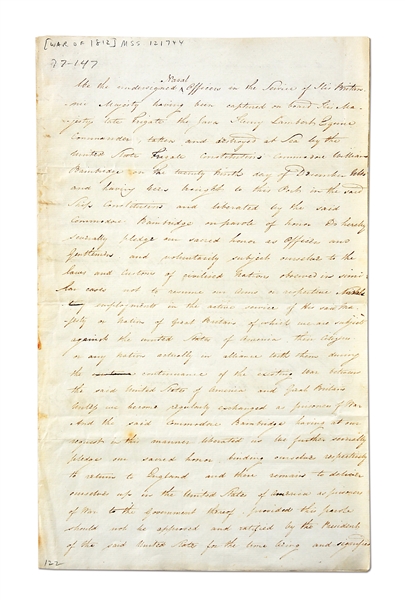 [WAR OF 1812] MSS 121744
27-147
Naval
We the undersigned Officers in the Service of His Britan-
-nic Majesty having been captured on board His Ma-
jestys late Frigate the Java Henry Lambert Esquire
Commander, taken and destroyed at Sea by the
United States Frigate Constitution commodore William
Bainbridge on the twenty ninth day of December
and having been brought to this Port in the said
Ship Constitution and liberated by the said
Commodore Bainbridge on parole of honor Do hereby
severally pledge our sacred honor as Officers and
Gentlemen and voluntarily subject ourselves to the
laws and customs of civilized Nations observed in simi-
lar cases not to resume our Arms or
employments in the active service of His said Ma-
jesty or Nation of Great Britain of which we are subjects
against the United States of America their Citizens
or any nation actually in alliance with them during
the continuance of the existing War between
the said United States of America and Great Britain
Untill we become regularly exchanged as prisoners of War
And the said Commodore Bainbridge having at our
request in this manner liberated us we further severally
pledge our sacred honor binding ourselves respectively
to return to England and there remain to deliver
ourselves up in the United States of America as prisoners
of War to the government thereof, provided this parole
should not be approved and ratified by the President
of the said United States for the time being and signified
122